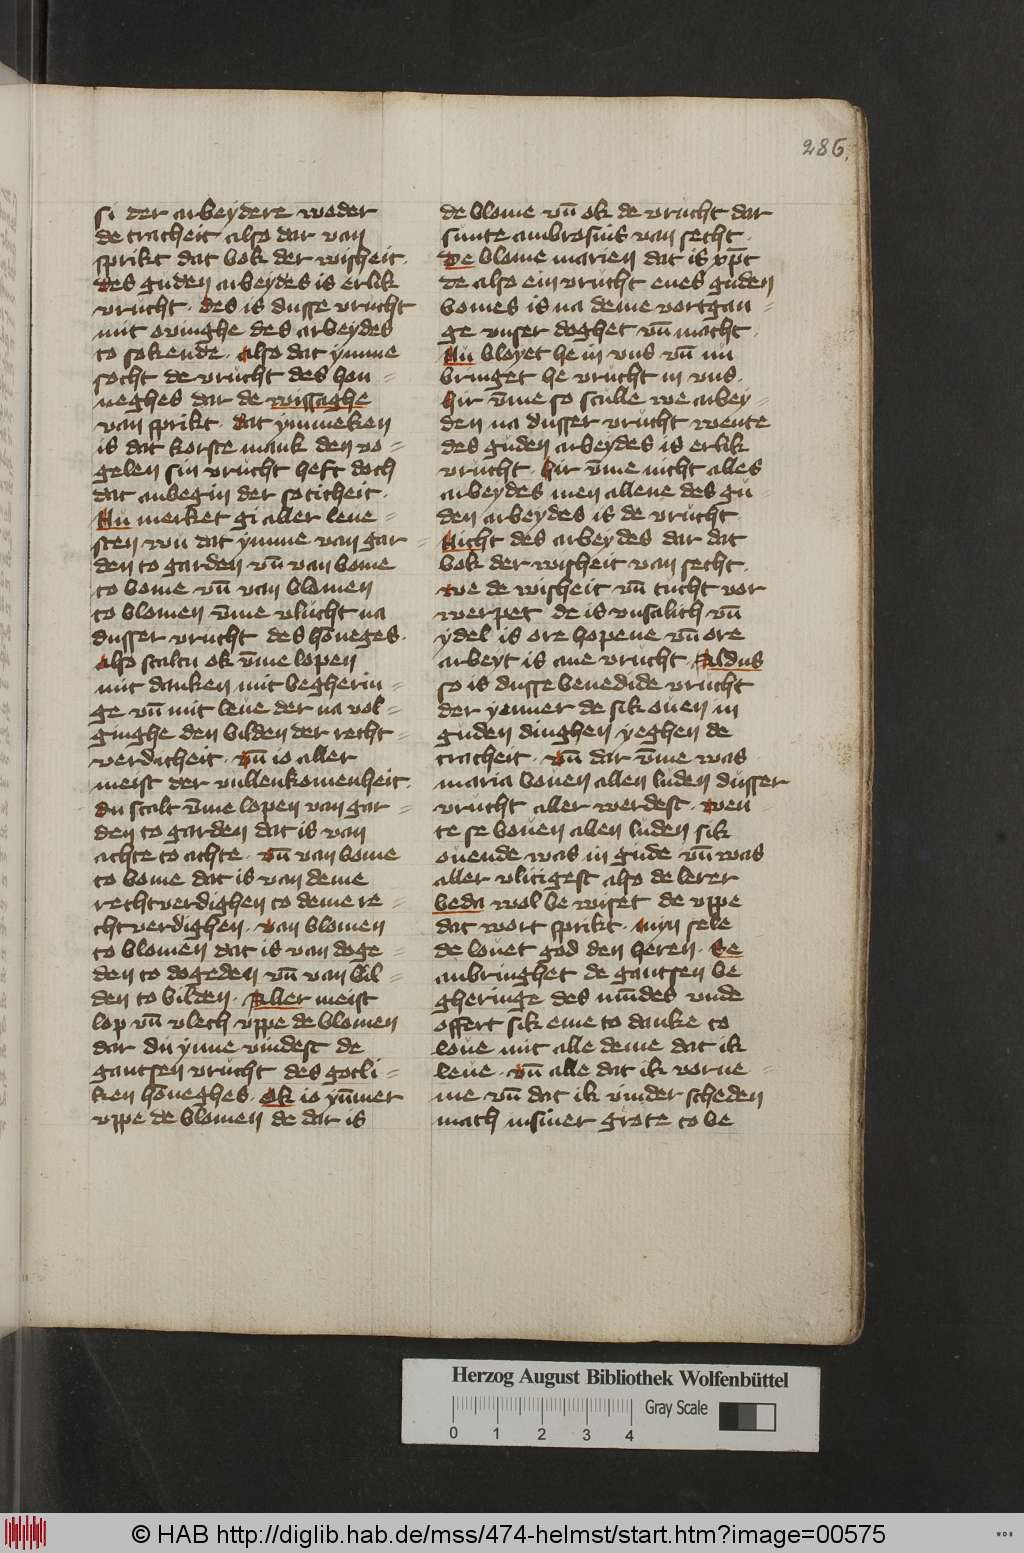 286.
si der arbeydere weder
de tracheit also dar van
sprikt dat bok der wisheit ·
des guden arbeydes is erlik
vrucht · des is dusse vrucht
mit ovinghe des arbeydes
to sokende · also dat ymme
socht de vrucht des hon =
neghes dar de wissaghe
van sprikt · dat ymmeken
is dat korste mank den vo =
gelen sin vrucht heft doch
dat anbegin der soticheit ·
Nu merket gi aller leue =
sten wu dat ymme van gar =
den to garden vn̄ van bome
to bome vn̄ van blomen
to blomen v̄me vlucht na
dusser vrucht des hōneges ·
also scaltu ok v̄me lopen
mit danken mit begherin =
ge vn̄ mit leue der na vol =
ginghe den bilden der recht =
verdicheit · vn̄ io aller
meist der vullenkomenheit ·
du scalt v̄me lopen van gar =
den to garden dat is van
achte to achte · vn̄ van bome
to bome dat is van deme
rechtverdighen to deme re =
chtverdighen · van blomen
to blomen dat is van doge =
den to dogeden vn̄ van bil =
den to bilden · Aller meist
lop vn̄ vlech vppe de blomen
dar du ynne vindest de
gantsen vrucht des gotli =
ken hōneghes · ok io yūmer
vppe de blomen de dar is
de blome vn̄ ok de vrucht dar
sunte ambrosius van secht ·
De blome marien dat is xp̄c
te also ein vrucht enes guden
bomes is na deme vortgan =
ge vnser doghet vn̄ macht ·
Nu bloyet he in vns vn̄ nu
bringet he vrucht in vns ·
hir v̄me so sculle we arbey =
den na dusser vrucht wente
des guden arbeydes is erlik
vrucht · hir v̄me nicht alles
arbeydes men allene des gu =
den arbeydes is de vrucht
Nicht des arbeydes dar dat
bok der wisheit van secht ·
we de wisheit vn̄ tucht vor
werpet de is vnsalich vn̄
ydel is ore hopene vn̄ ore
arbeyt is ane vrucht · Aldus
so is dusse benedide vrucht
der yenner de sik ouen in
guden dinghen yeghen de
tracheit · vn̄ dar v̄me was
maria bouen allen luden dusser
vrucht aller werdest · wen =
te se bouen allen luden sik
ouende was in gude vn̄ was
aller vlitigest also de lerer
beda wol be wiset de vppe
dat wort sprikt · myn sele
de louet god den heren · Se
anbringhet de gantsen be
gheringe des mūdes vnde
offert sik eme to danke to
loue mit alle deme dat ik
leue · vn̄ alle dat ik vorne =
me vn̄ dat ik vnder scheden
mach in siner grote to be
Herzog August Bibliothek Wolfenbüttel
Gray Scale
0 1 2 3 4
© HAB http://diglib.hab.de/mss/474-helmst/start.htm?image=00575